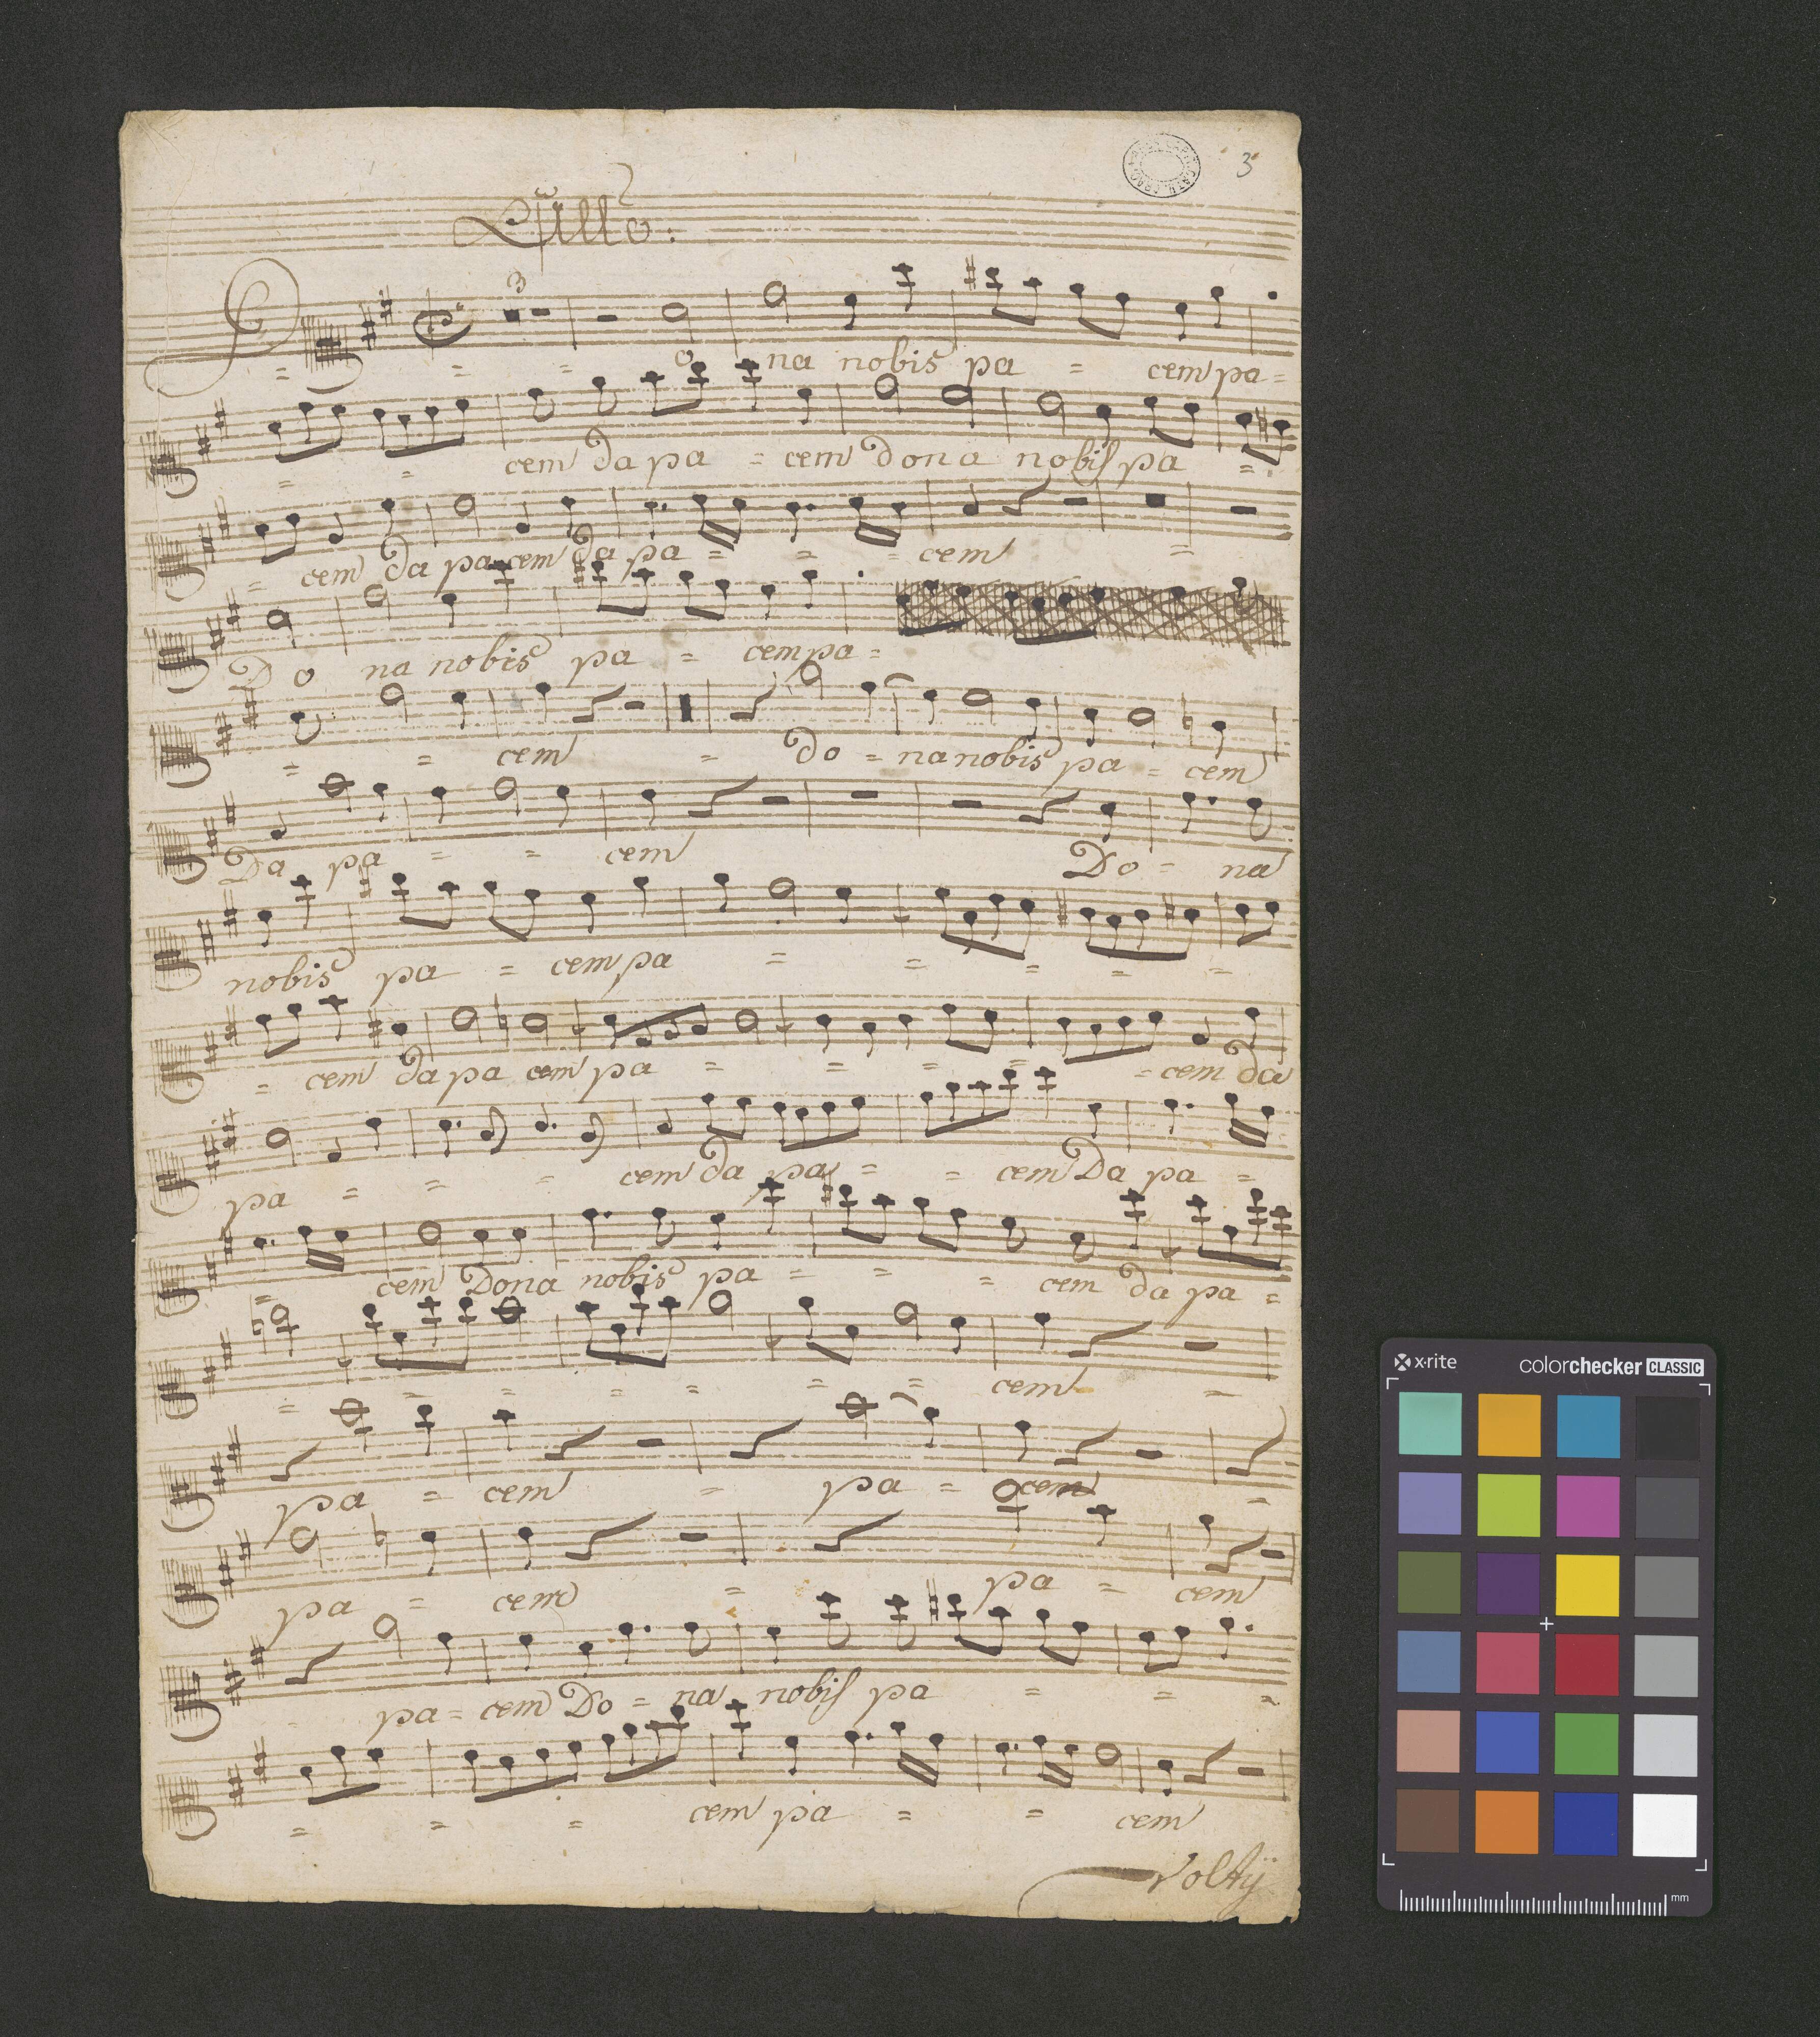 3
3
D = = = o na nobis pa = cem pa =
= = cem da pa = cem dona nobis pa =
= cem da pa cem da pa = = = cem =
Do na nobis pa = cem pa =
= = cem = do = na nobis pa = cem
Da pa = = cem Do = na
nobis pa = cem pa = = = = =
= cem da pa cem pa = = = = = cem da
pa = = = cem da pa = = cem Da pa =
= cem Dona nobis pa = = = cem da pa =
= = = = = = = cem =
pa = cem = pa = cem =
pa = cem = pa = cem
pa = cem Do = na nobis pa = = =
= = = cem pa = = cem
Voltij
x·rite
colorchecker CLASSIC
mm